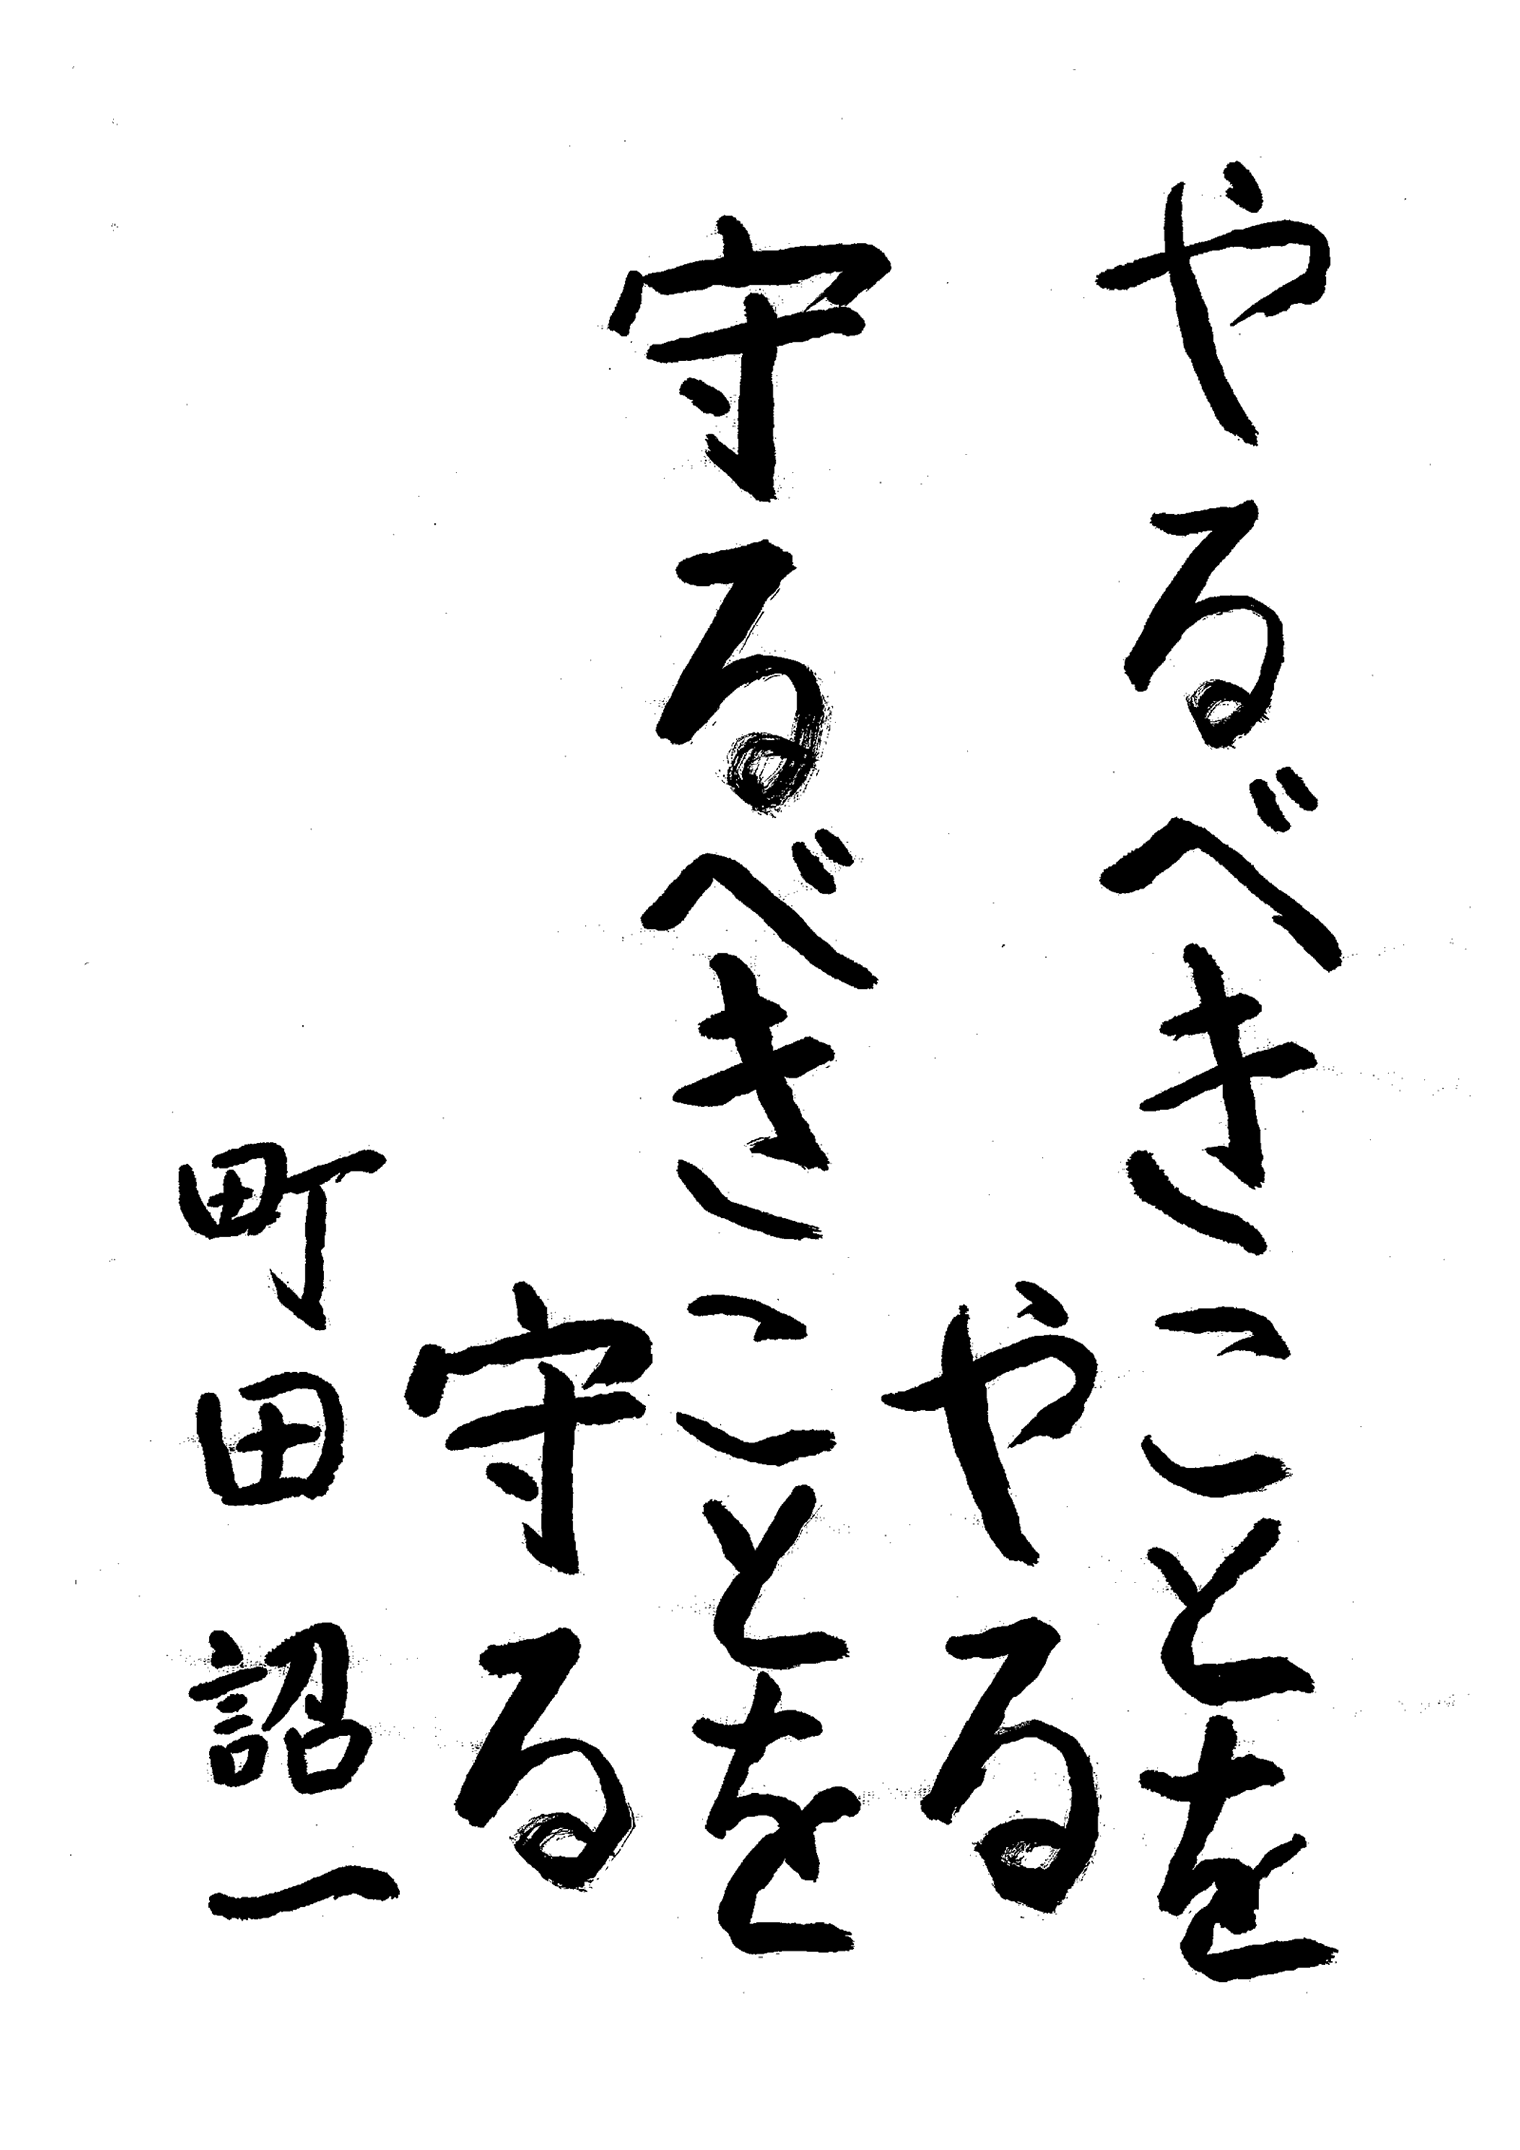 やるべきことを
やる
守るべきことを
守る
町田詔一